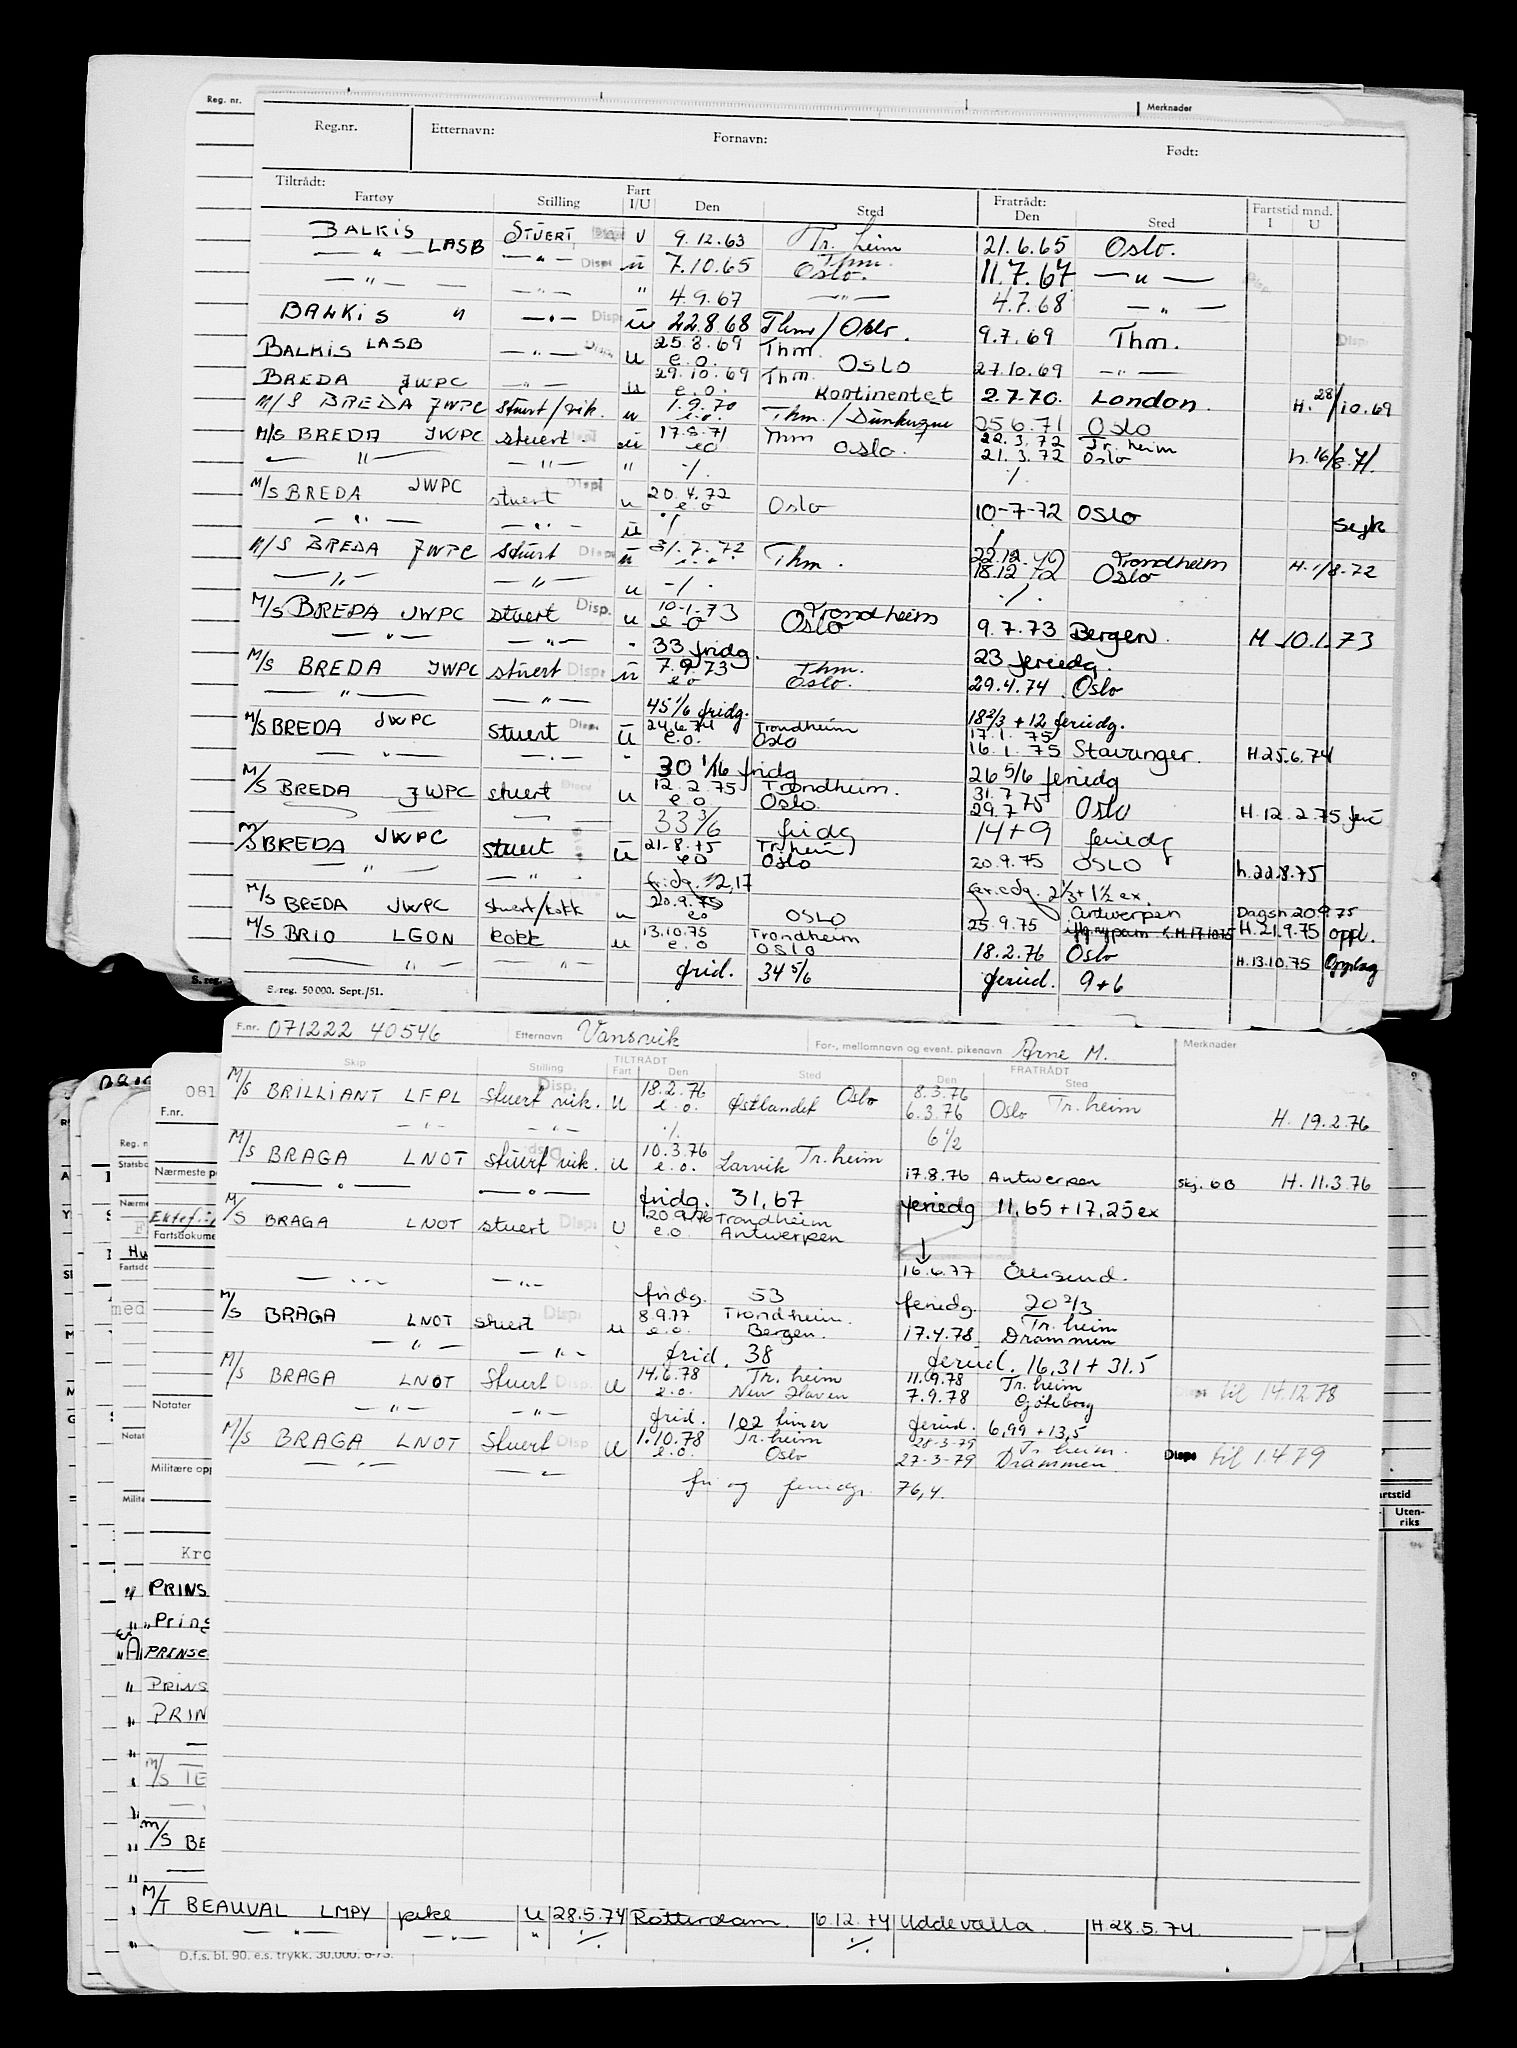 Reg. nr.
Merknader
Reg.nr. Etternavn: Fornavn: Født:
Tiltrådt: Fratrådt: Fartstid mnd.
Fartøy Stilling Fart I/U Den Sted Den Sted I U
BALKIS LASB STUERT U 9.12.63 Tr. heim 21.6.65 Oslo.
— " — — " — Disp. u 7.10.65 Thm. Oslo. 11.7.67 — " —
— " — — " — " 4.9.67 — " — 4.7.68 — " —
BALKIS " — " — Disp u 22.8.68 Thm / Oslo. 9.7.69 Thm.
BALKIS LASB — " — u 25 8. 69 e.o. Thm. OSLO 27.10.69 — " —
BREDA JWPC — " — u 29.10.69 e.o. Thm. Kontinentet 2.7.70. London. H. 28/10.69
M/S BREDA JWPC stuert/vik. u 1.9.70 e.o. Thm./Dunkerque 25 6.71 Oslo
M/S BREDA JWPC stuert. u 17.8.71 eo Thm Oslo. 22.3.72 Tr. heim h. 16/8.71.
— " — — " — " ./. 21.3.72 Oslo
./.
M/S BREDA JWPC stuert u 20.4.72 e o Oslo 10-7-72 OSLO Sejk
— " — — " — u ./.
M/S BREDA JWPC Stuert Disp u 31.7.72 e.o. Thm. 22.12.72 Trondheim H. 1/8-72
— " — — " — u ./. 18.12 72 Oslo
./.
M/S BREDA JWPC stuert Disp. u 10-1-73 e o Trondheim Oslo 9.7.73 Bergen. H 10.1.73
— " — — " — " 33 fridg. 23 feriedg.
M/S BREDA JWPC stuert Disp. u 7.9.73 eo Thm. Oslo. 29.4.74 Oslo
— " — — " — 45 1/6 fridg. 18 2/3 + 12 feriedg.
M/S BREDA JWPC stuert Disp. u 24.6.74 e.o. Trondheim Oslo 17.1.75 16.1.75 Stavanger. H.25.6.74
— " — — " — " 30 1/16 fridg 26 5/6 feriedg
M/S BREDA JWPC stuert u 12.2.75 e o Trondheim. Oslo. 31.7 29.7 75 Oslo H.12.2.75
33 3/6 fridg 14+9 feriedg
M/S BREDA JWPC stuert u 21-8-75 eo Tr.heim Oslo 20.9.75 OSLO h.22.8.75
— " — — " — fridg. 32,17 feriedg. 2 1/3+1 1/2 ex.
M/S BREDA JWPC stuert/kokk u 20.9.75 eo OSLO 25.9.75 Antwerpen Dagsh 20.9.75
M/S BRIO LGON kokk u 13.10.75 e.o Trondheim OSLO 18.2.76 Oslo H.21.9.75 oppl.
— " — — " — frid. 34 5/6 feried. 9+6 H.13.10.75 Opplag
S. reg. 50 000. Sept./51.
F.nr. 071222 40546 Etternavn Vansvik For-, mellomnavn og event. pikenavn Arne M. Merknader
Skip Stilling TILTRÅDT Fart Den Sted FRATRÅDT Den Sted
M/S BRILLIANT LFPL Stuert vik. Disp. u 18.2.76 e.o. Østlandet Oslo 8.3.76 6.3.76 Oslo Tr.heim H. 19.2.76
— " — — " — ./. 6 1/2
M/S BRAGA LNOT Stuert vik. u 10.3.76 e.o. Larvik Tr.heim 17.8.76 Antwerpen Skj. 6B H. 11.3.76
— " — — " — fridg. 31,67 feriedg 11,65+17,25 ex
M/S BRAGA LNOT stuert Disp. u 20.9.76 e.o. Trondheim Antwerpen
— " — — " — 16.6.77 Ålesund.
fridg. 53 feriedg. 20 2/3
M/S BRAGA LNOT stuert Disp. u 8.9.77 e.o. Trondheim. Bergen. 17.4.78 Tr.heim Drammen
— " — — " — frid. 38 feried. 16,31 + 31.5
M/S BRAGA LNOT Stuert Disp. u 14.6.78 e.o. Tr.heim New Haven 11.9.78 7.9.78 Tr.heim Göteborg til 14.12.78
— " — — " — frid. 102 timer feried. 6,99 +13,5
M/S BRAGA LNOT Stuert Disp u 1.10.78 e.o. Tr.heim Oslo 28-3-79 27-3-79 Tr heim. Drammen Disps til 1.4 79
— " — — " — fri og feriedgr. 76,4.
081
F.nr.
Reg. n
Nærmeste p
Fartsdokume
Notater
Militære opp
Kro
PRINS
Prins
PRINSE
PRINS
PRIN
M/S TE
M/S BE
artstid
Uten-
riks
M/T BEAUVAL LMPY pike u 28.5.74 Rotterdam. 6.12.74 Uddevalla. H 28.5.74.
— " — — " — " ./. ./.
D.f.s. bl. 90. e.s. trykk. 30.000. 6-73.